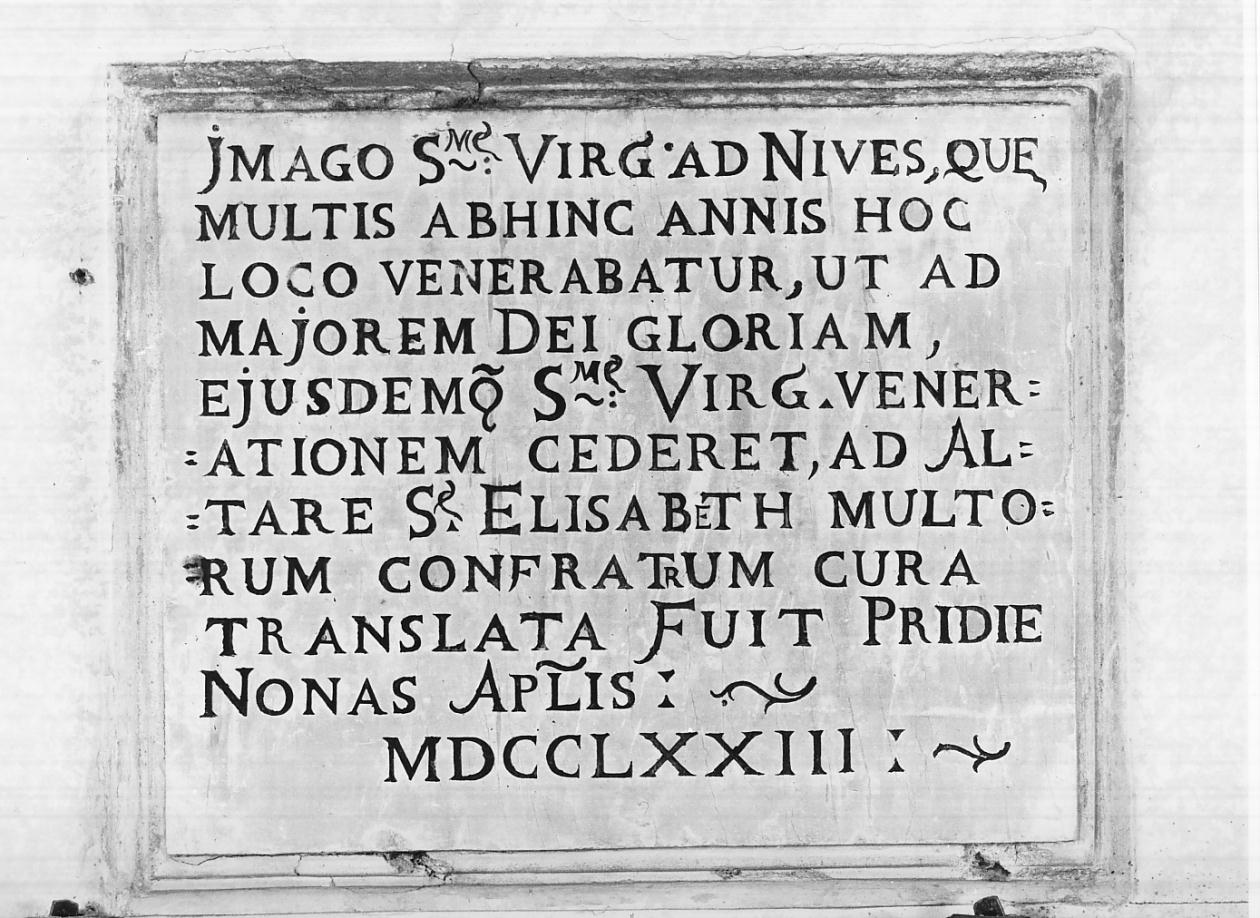 JMAGO Smę. VIRG. AD NIVES, QUĘ
MULTIS ABHINC ANNIS HOC
LOCO VENERABATUR, UT AD
MAJOREM DEI GLORIAM,
EJUSDEMQ̃ Smę. VIRG. VENER=
=ATIONEM CEDERET, AD AL=
=TARE Sę. ELISABETH MULTO=
=RUM CONFRATRUM CURA
TRANSLATA FUIT PRIDIE
NONAS APL̃IS :
MDCCLXXIII :